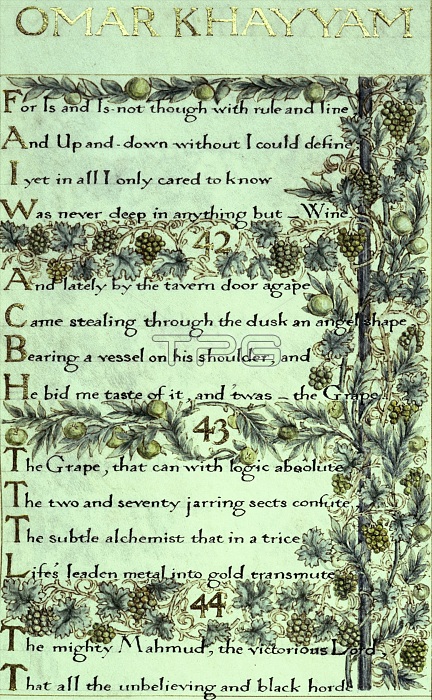 OMAR KHAYYAM
For Is and Is-not though with rule and line
And Up and-down without I could define
I yet in all I only cared to know
Was never deep in anything but – Wine.
42
And lately by the tavern door agape
Came stealing through the dusk an angel shape
Bearing a vessel on his shoulder, and
He bid me taste of it, and 'twas – the Grape.
43
The Grape, that can with logic absolute
The two and seventy jarring sects confute,
The subtle alchemist that in a trice
Life's leaden metal into gold transmute
44
The mighty Mahmud, the victorious Lord,
That all the unbelieving and black horde
TPG